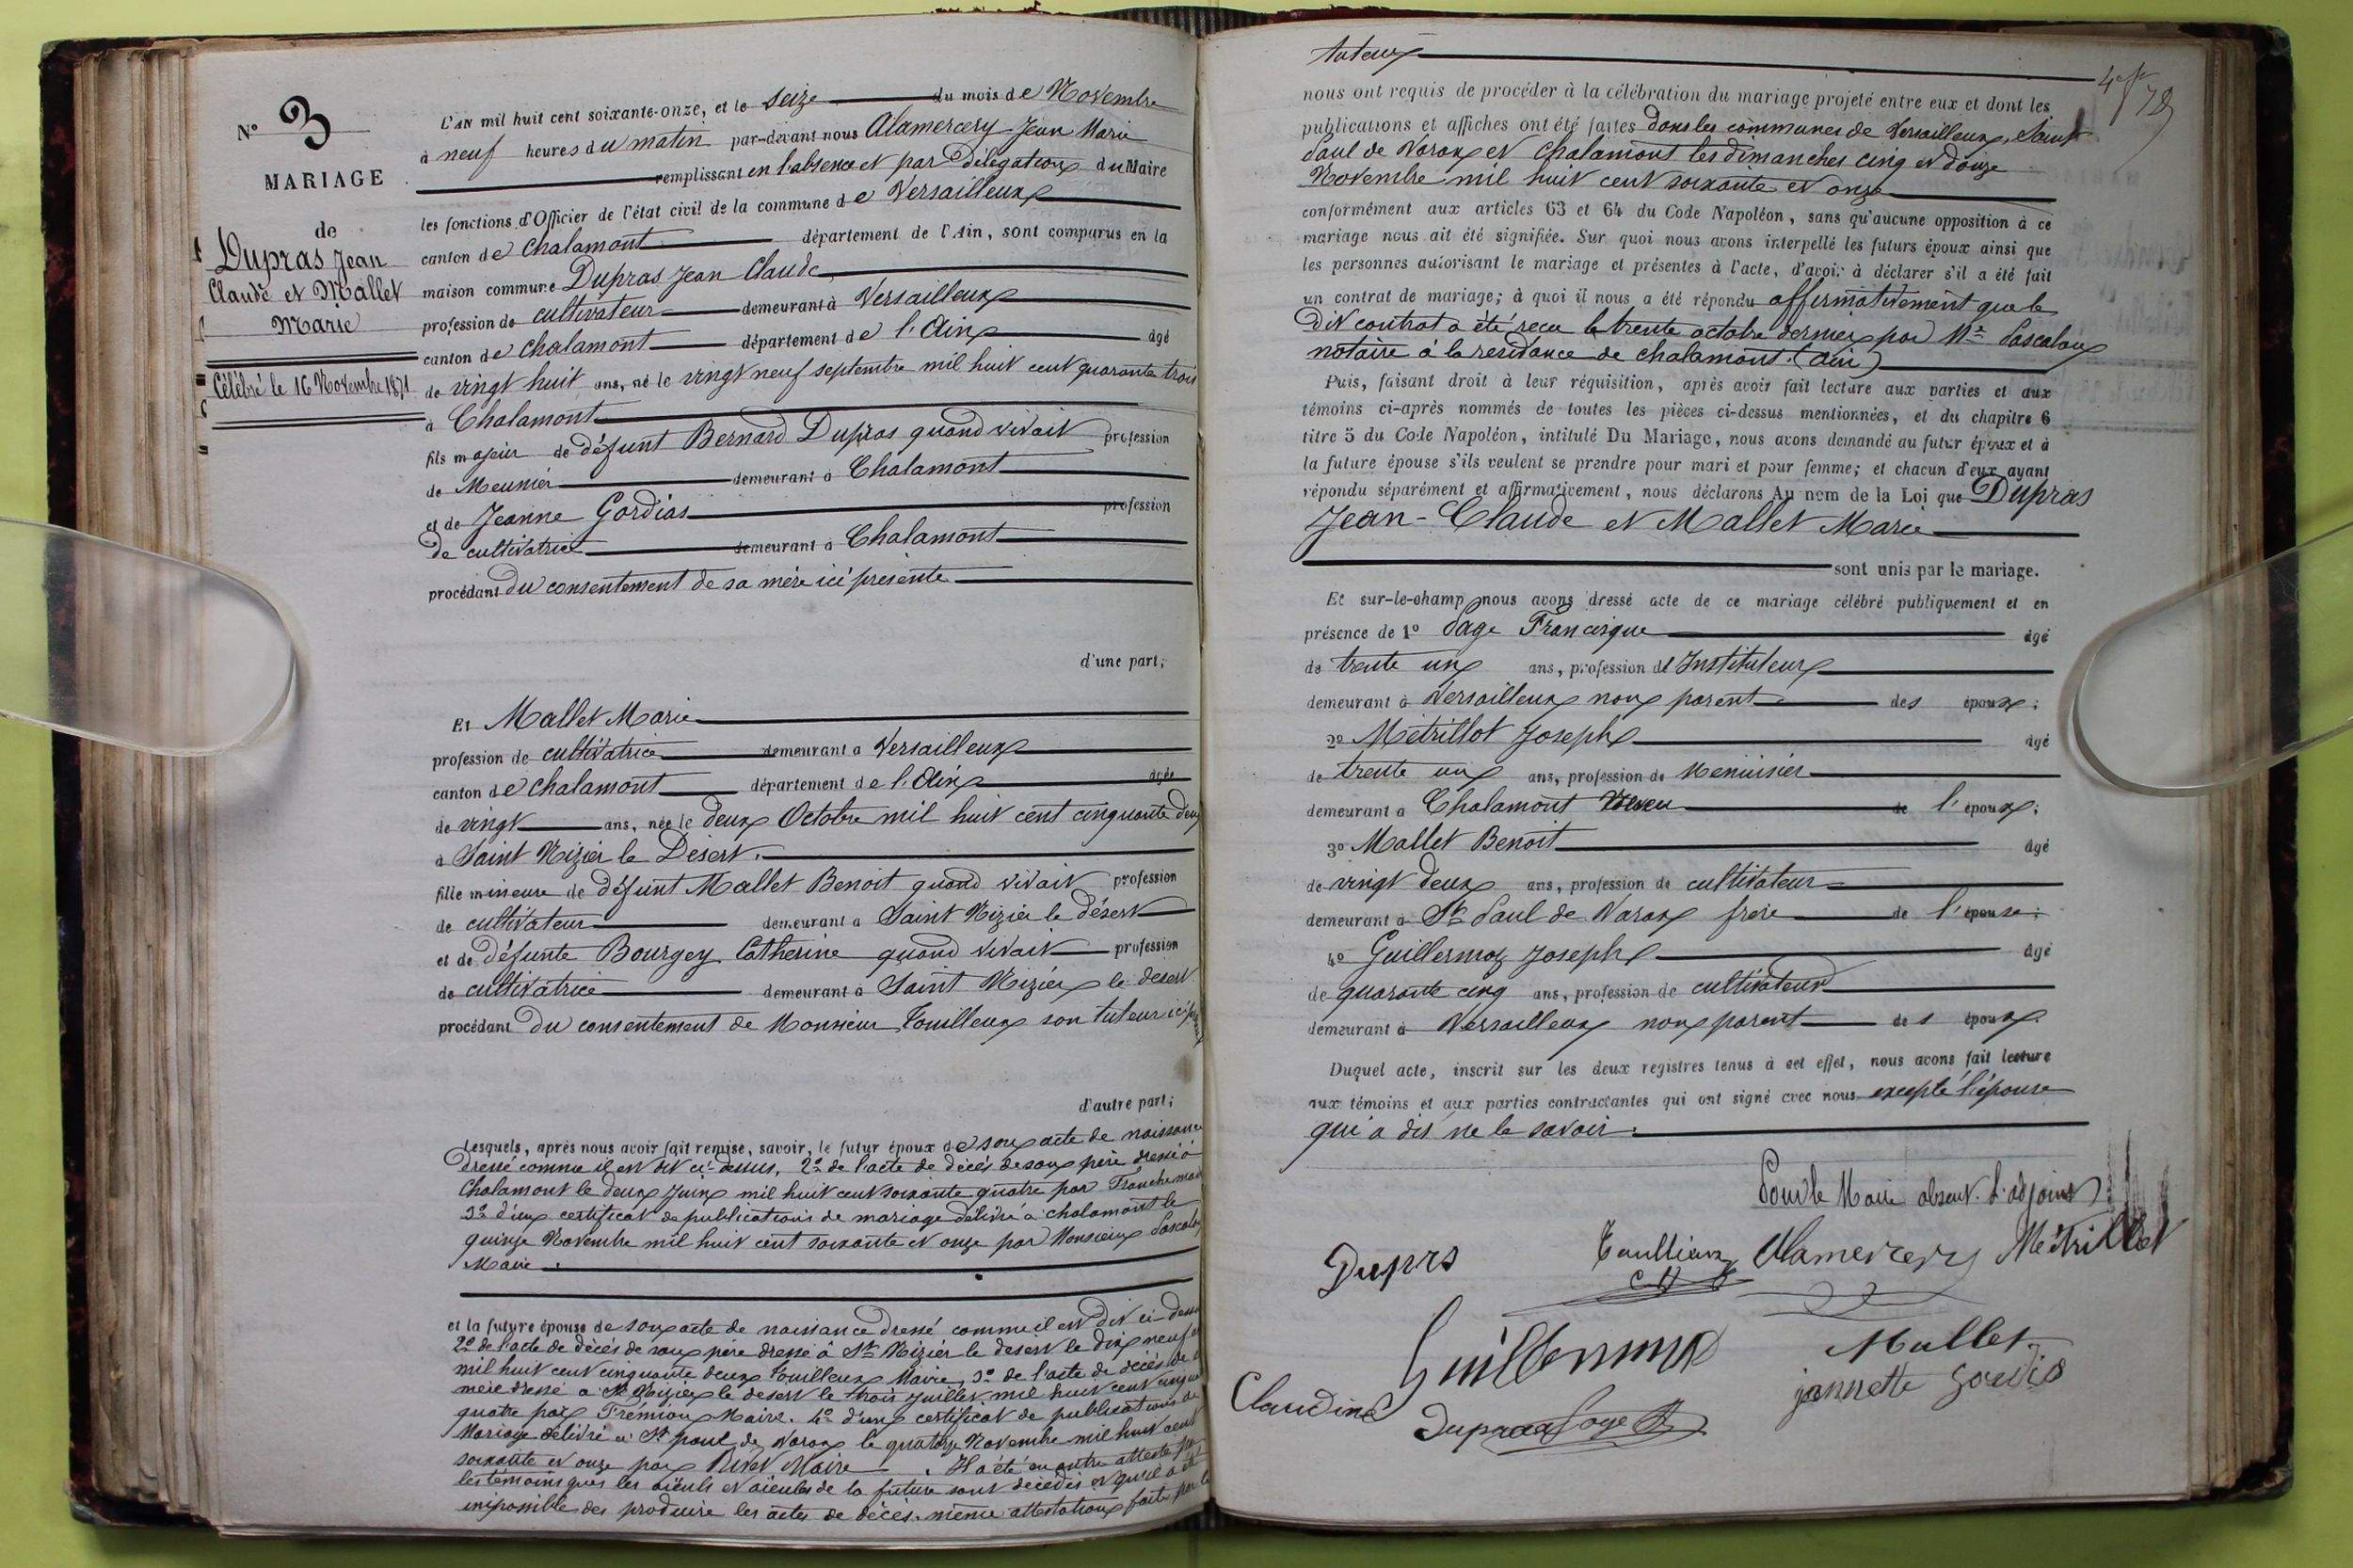 N° 3
MARIAGE
de
Dupras Jean
Claude et Mallet
Marie
Célébré le 16 Novembre 1871
L'AN mil huit cent soixante-onze, et le seize du mois de Novembre
à neuf heures du matin par-devant nous Alamercery Jean Marie
remplissant en l'absence et par Délégation du Maire
les fonctions d'Officier de l'état civil de la commune de Versailleux
canton de Chalamont département de l'Ain, sont comparus en la
maison commune Dupras Jean Claude
profession de cultivateur demeurant à Versailleux
canton de Chalamont département de l'Ain âgé
de vingt huit ans, né le vingt neuf septembre mil huit cent quarante trois
à Chalamont
fils majeur de défunt Bernard Dupras quand vivait profession
de Meunier demeurant à Chalamont
et de Jeanne Gordias profession
De cultivatrice demeurant à Chalamont
procédant du consentement de sa mère ici présente
d'une part;
Et Mallet Marie
profession de cultivatrice demeurant à Versailleux
canton de Chalamont département de l'Ain âgée
de vingt ans, née le deux Octobre mil huit cent cinquante deux
à Saint Nizier le Desert.
fille mineure de défunt Mallet Benoit quand vivait profession
de cultivateur demeurant à Saint Nizier le désert
et de défunte Bourgey Catherine quand vivait profession
de cultivatrice demeurant à Saint Nizier le desert
procédant du consentement de Monsieur Touilleux son tuteur ici
d'autre part;
Lesquels, après nous avoir fait remise, savoir, le futur époux de son acte de naissance
dressé comme il est dit ci-dessus, 2° de l'acte de décès de son père dressé à
Chalamont le deux Juin mil huit cent soixante quatre par
3° d'un certificat de publications de mariage délivré à Chalamont le
quinze Novembre mil huit cent soixante et onze par Monsieur
Maire.
et la future épouse de son acte de naissance dressé comme il est dit ci-dessus
2° de l'acte de décès de son père dressé à St Nizier le desert le dix neuf
mil huit cent cinquante deux Touilleux Maire, 3° de l'acte de décès de
mère dressé à St Nizier le desert le trois Juillet mil huit cent
quatre par Frémion Maire. 4° d'un certificat de publications de
Mariage délivré à St paul de Varax le quatorze Novembre mil huit cent
soixante et onze par Maire. Il a été en outre attesté par
les témoins que les aïeuls et aïeules de la future sont décédés et qu'il a été
impossible de produire les actes de décès. même attestation faite par le
tuteur
nous ont requis de procéder à la célébration du mariage projeté entre eux et dont les
publications et affiches ont été faites dans les communes de Versailleux, Saint
Paul de Varax et Chalamont les dimanches cinq et douze
Novembre mil huit cent soixante et onze
conformément aux articles 63 et 64 du Code Napoléon, sans qu'aucune opposition à ce
mariage nous ait été signifiée. Sur quoi nous avons interpellé les futurs époux ainsi que
les personnes autorisant le mariage et présentes à l'acte, d'avoir à déclarer s'il a été fait
un contrat de mariage; à quoi il nous a été répondu affirmativement que le
Dit contrat a été reçu le trente octobre dernier par Me
notaire à la residance de Chalamont (Ain)
Puis, faisant droit à leur réquisition, après avoir fait lecture aux parties et aux
témoins ci-après nommés de toutes les pièces ci-dessus mentionnées, et du chapitre 6
titre 5 du Code Napoléon, intitulé Du Mariage, nous avons demandé au futur époux et à
la future épouse s'ils veulent se prendre pour mari et pour femme; et chacun d'eux ayant
répondu séparément et affirmativement, nous déclarons Au nom de la Loi que Dupras
Jean-Claude et Mallet Marie
sont unis par le mariage.
Et sur-le-champ nous avons dressé acte de ce mariage célébré publiquement et en
présence de 1° Page Francisque âgé
de trente un ans, profession d'Instituteur
demeurant à Versailleux non parent des époux;
2° Métrillot Joseph âgé
de trente un ans, profession de Menuisier
demeurant à Chalamont de l'époux;
3° Mallet Benoit âgé
de vingt deux ans, profession de cultivateur
demeurant à St Paul de Varax frere de l'épouse;
4° Guillermoz Joseph âgé
de quarante cinq ans, profession de cultivateur
demeurant à Versailleux non parent des époux.
Duquel acte, inscrit sur les deux registres tenus à cet effet, nous avons fait lecture
aux témoins et aux parties contractantes qui ont signé avec nous excepté l'épouse
qui a dit ne le savoir.
Pour le Maire absent. L'adjoint
Duprs
Alamercery Métrillot
Mallet
Claudine